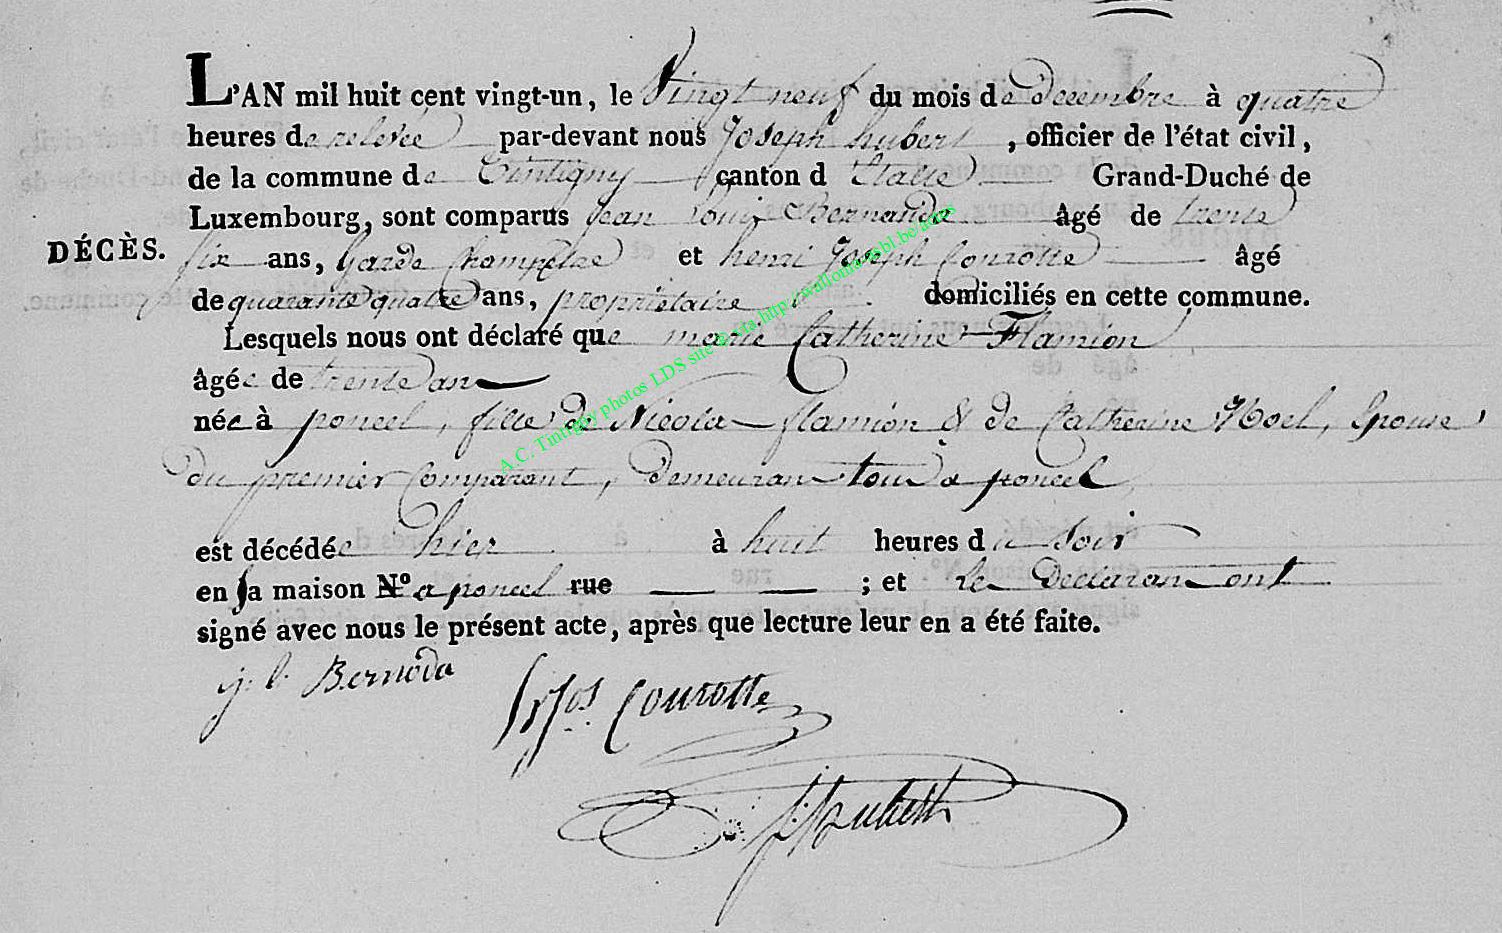 L'AN mil huit cent vingt-un, le Vingt neuf du mois de decembre à quatre
heures de relevée par-devant nous Joseph hubert, officier de l'état civil,
de la commune de Tintigny canton d'Etalle Grand-Duché de
Luxembourg, sont comparus Jean Louis Bernarde âgé de trente
DÉCÈS.
six ans, Garde Champetre et henri Joseph Courotte âgé
de quarante quatre ans, proprietaire domiciliés en cette commune.
Lesquels nous ont déclaré que marie Catherine Flamion
âgée de trente ans
née à poncel, fille de Nicolas flamion & de Catherine Noel, Epouse
du premier Comparant, demeurans tous a poncel,
est décédée hier à huit heures du Soir
en sa maison N.º a poncel rue ; et les Declarans ont
signé avec nous le présent acte, après que lecture leur en a été faite.
j. l. Bernoda
hr Jos. Courotte
J. Hubert
A.C. Tintigny photos LDS site © via http://wallonia-asbl.be/actes